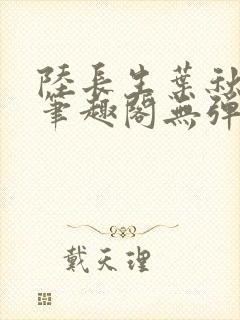 陸長生葉秋
筆趣閣無彈
戴天理